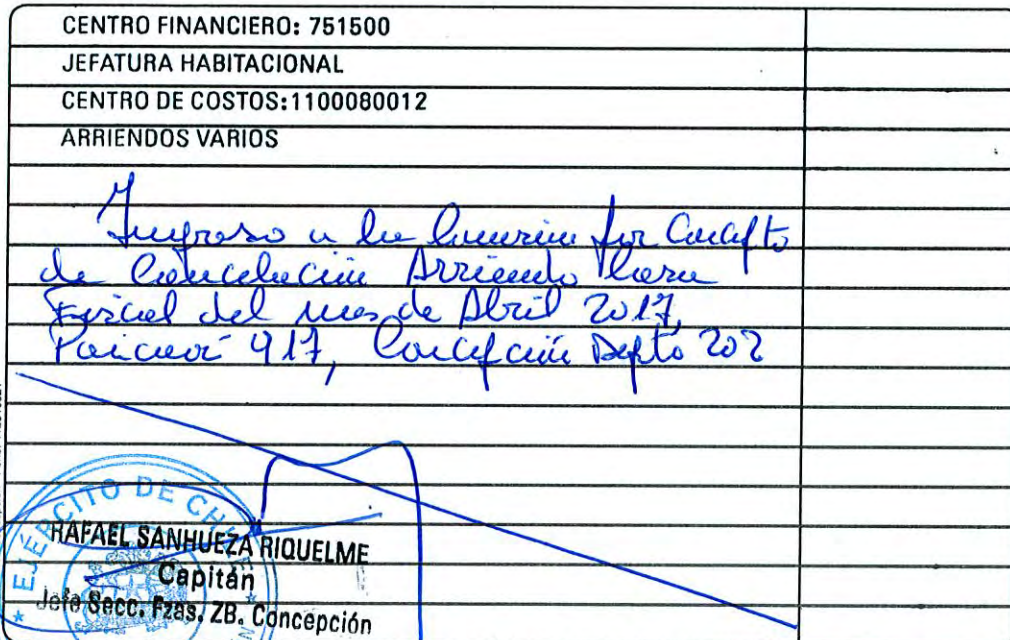 CENTRO FINANCIERO: 751500
JEFATURA HABITACIONAL
CENTRO DE COSTOS:1100080012
ARRIENDOS VARIOS
Ingreso a la por Concepto
de Cancelación Arriendo Casa
Fiscal del mes de Abril 2017,
917, Concepción Depto 202
EJÉRCITO DE CHILE
RAFAEL SANHUEZA RIQUELME
Capitán
Jefe Secc. Fzas. ZB. Concepción